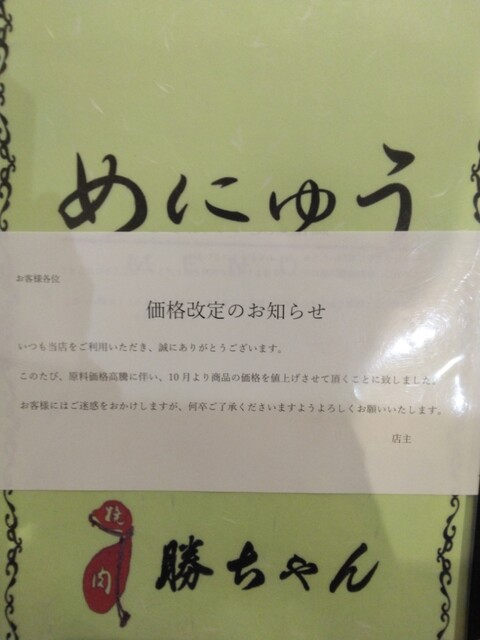 めにゅう
お客様各位
価格改定のお知らせ
いつも当店をご利用いただき、誠にありがとうございます。
このたび、原料価格高騰に伴い、10月より商品の価格を値上げさせて頂くことに致しました。
お客様にはご迷惑をおかけしますが、何卒ご了承くださいますようよろしくお願いいたします。
店主
焼肉
勝ちゃん